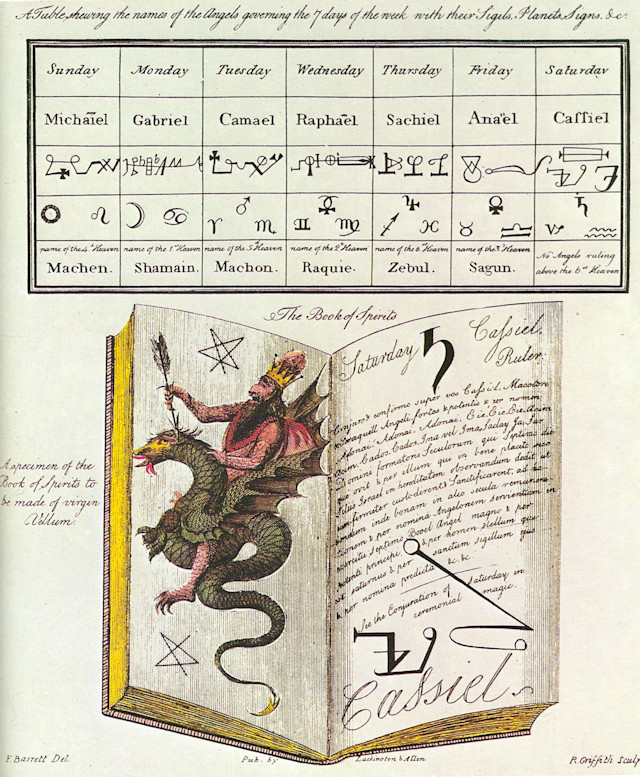 A Table shewing the names of the Angels governing the 7 days of the week with their Sigils, Planets, Signs, &c.
Sunday Monday Tuesday Wednesday Thursday Friday Saturday
Michaïel Gabriel Camael Raphaël Sachiel Anaël Caſsiel
name of the 4th Heaven name of the 1st Heaven name of the 5 Heaven name of the 2d Heaven name of the 6 Heaven name of the 3d Heaven No Angels ruling
Machen. Shamain. Machon. Raquie. Zebul. Sagun. above the 6th Heaven
The Book of Spirits
A specimen of the
Book of Spirits to
be made of virgin
Vellum.
Saturday
Caſsiel
Ruler
Conjuro & confirmo super vos Caſsiel, Macatori
& Seraquiel Angeli fortes & potentis & per nomen
Adonai, Adonai, Adonai, Eie, Eie, Eie, Acim
Cados, Cados, Ima vel Ima, Saday, Ja, Sar
Domini formatoris Seculorum qui Septimo die
quievit & per illum qui in bene placito suo
filiis Israel in hereditatem observandum dedit ut
& per nomina Angelorum servientium in
exercitu septimo Booel Angel magno & per
potenti principi & per nomen stellum quæ
est saturnus & per sanctum sigillum quis
& per nomina predicta &c. &c.
See the Conjuration of Saturday, in
ceremonial magic.
Caſsiel.
F. Barrett Del. Pub. by Lackington & Allen R. Griffith Sculp.